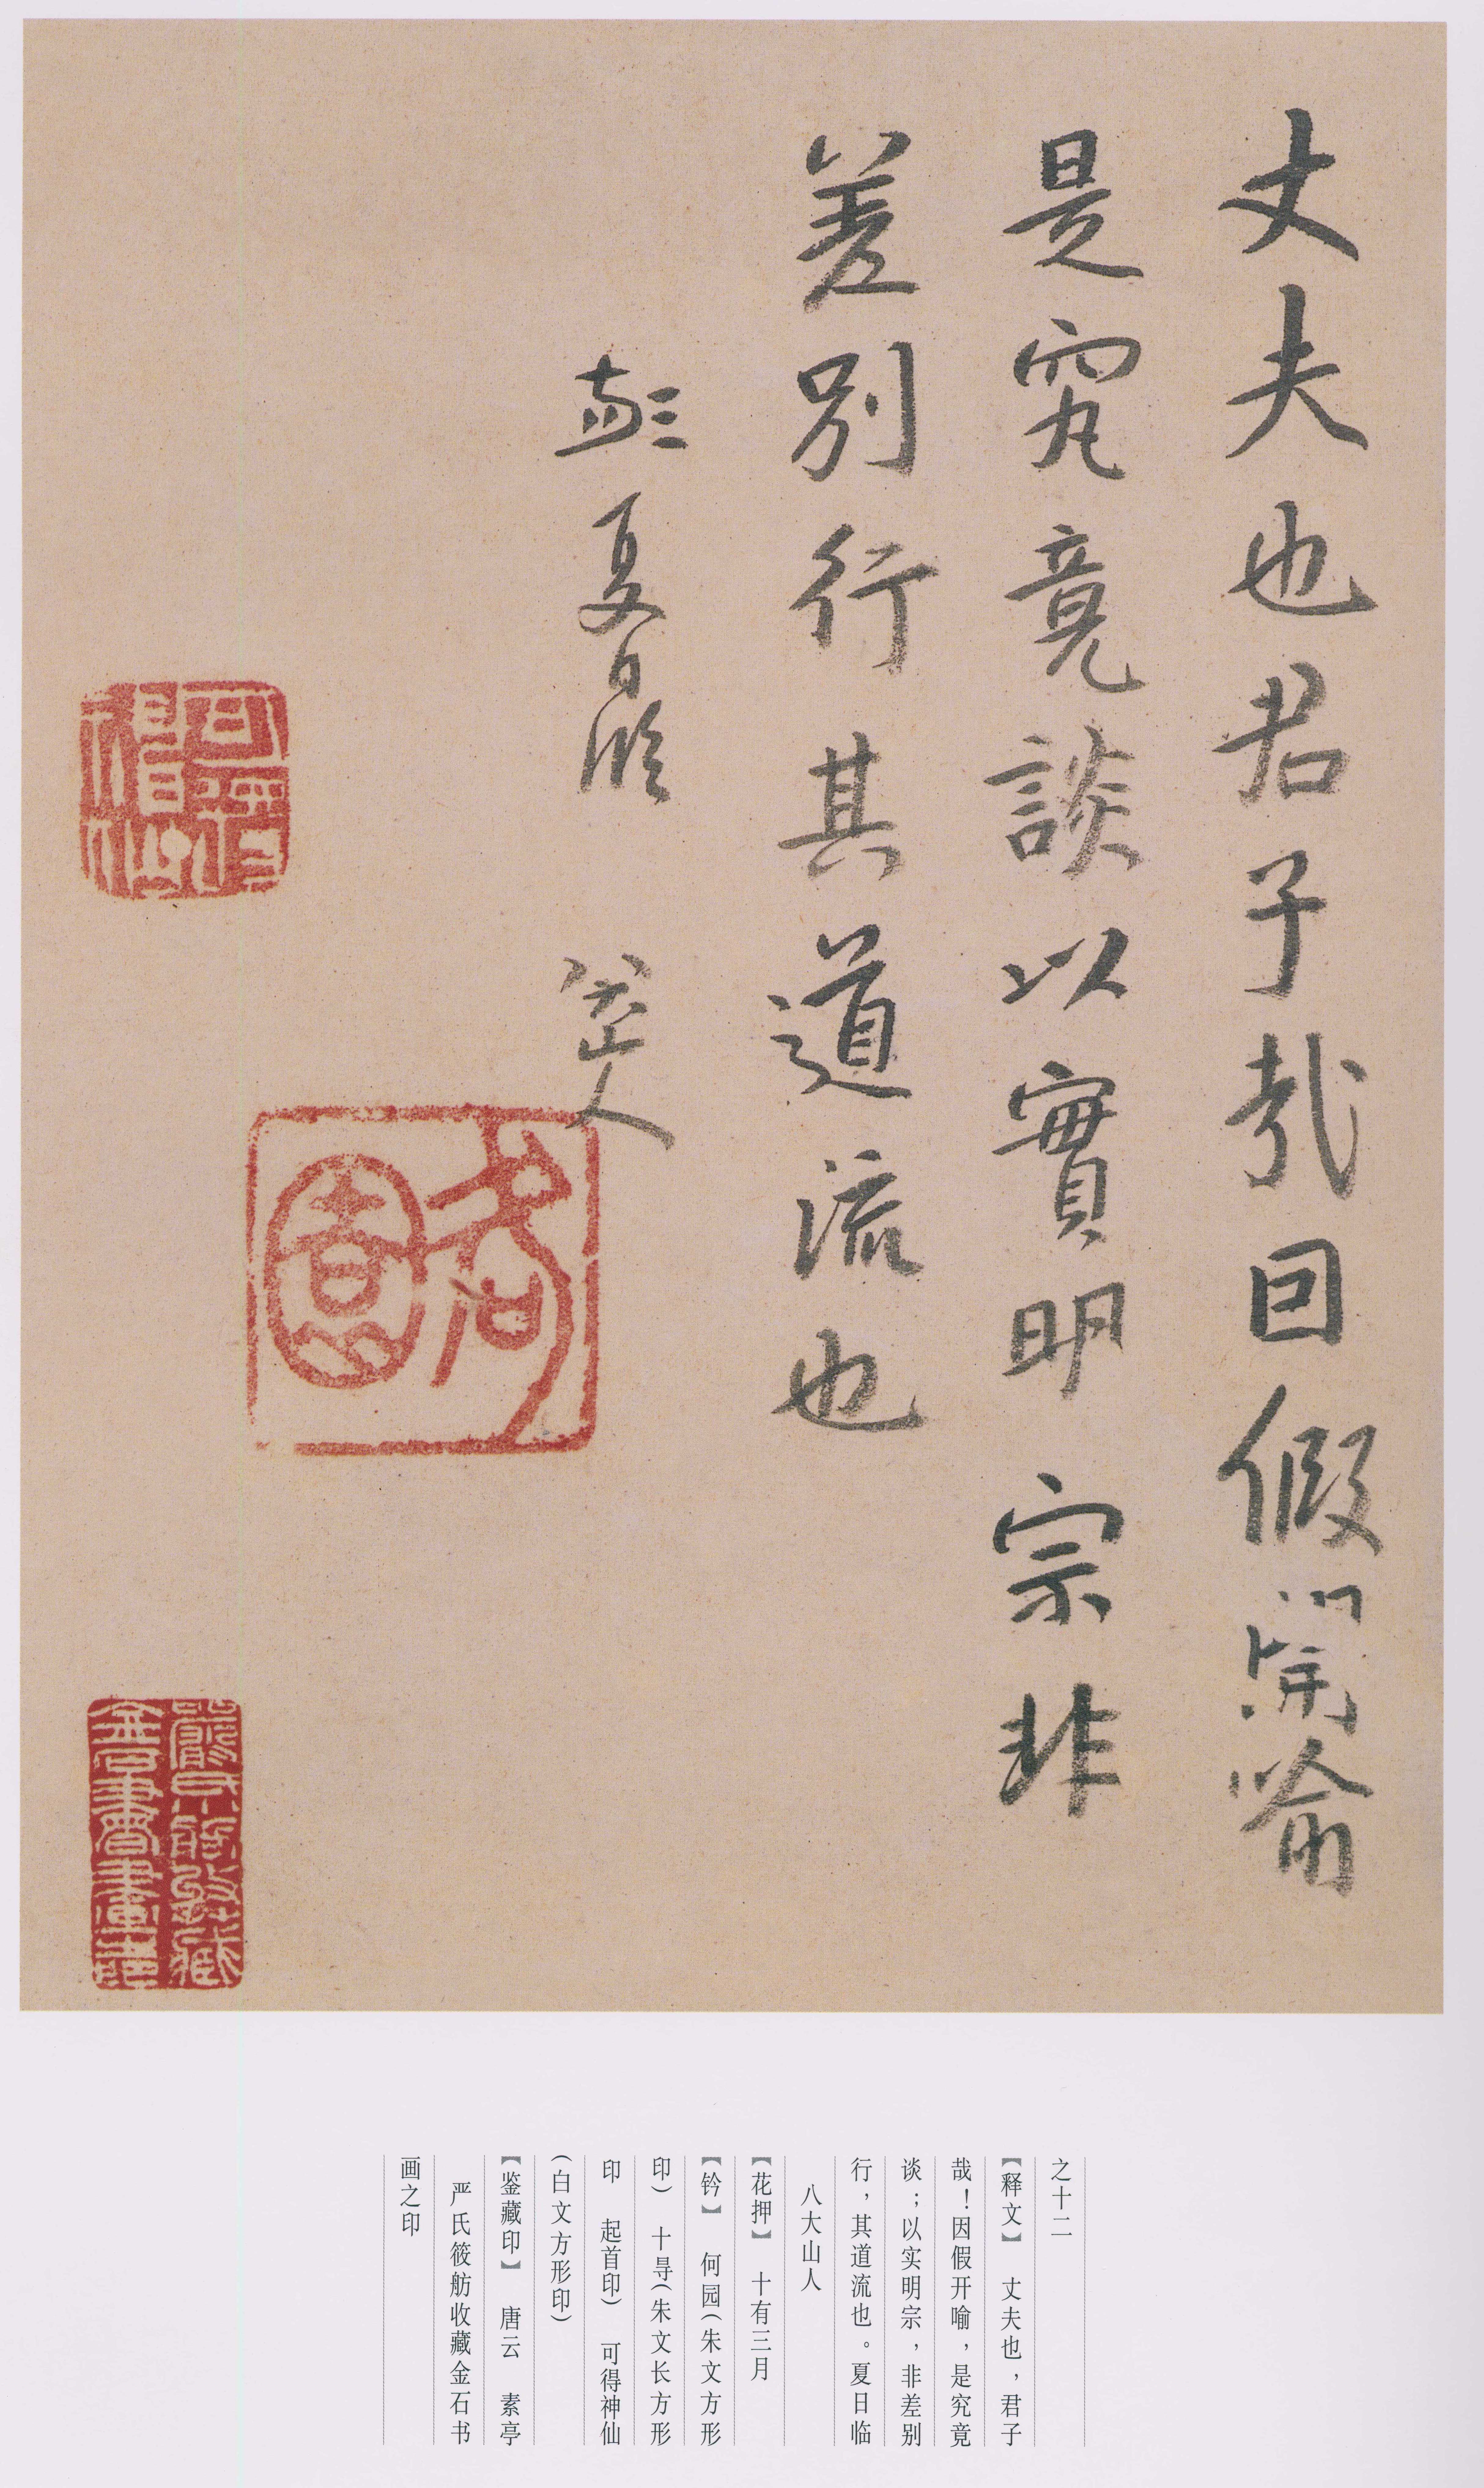 丈夫也君子哉回假開喻
是究竟談以實明宗非
差別行其道流也
夏日臨
八大山人
可得神仙
何園
嚴氏篏舫收藏
金石書畫之印
之十二
【释文】 丈夫也，君子
哉！因假开喻，是究竟
谈；以实明宗，非差别
行，其道流也。夏日临
八大山人
【花押】 十有三月
【钤】 何园（朱文方形
印） 十㝵（朱文长方形
印 起首印） 可得神仙
（白文方形印）
【鉴藏印】 唐云 素亭
严氏筱舫收藏金石书
画之印